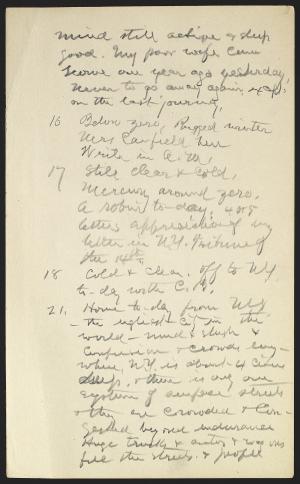 mind still active & sleep
good. My poor wife came
home one year ago yesterday,
never to go away again, except
on the last journey.
16 Below zero, Rugged winter
Mrs Canfield here
Write in A.M.
17 Still clear & cold,
Mercury around zero.
A robin to-day. 4 or 5
letters appreciative of my
letter in N.Y. Tribune of
the 14th.
18 Cold & clear. Off to N.Y.
to-day with C. B.
21. Home to-day from N.Y.
- the ugliest city in the
world - mud & slush &
confusion & crowds every-
where. N.Y. is about 4 cities
deep, & there is only one
system of surface streets
& they are crowded & con-
gested beyond endurance
Huge trucks & autos & wagons
fill the streets, & people